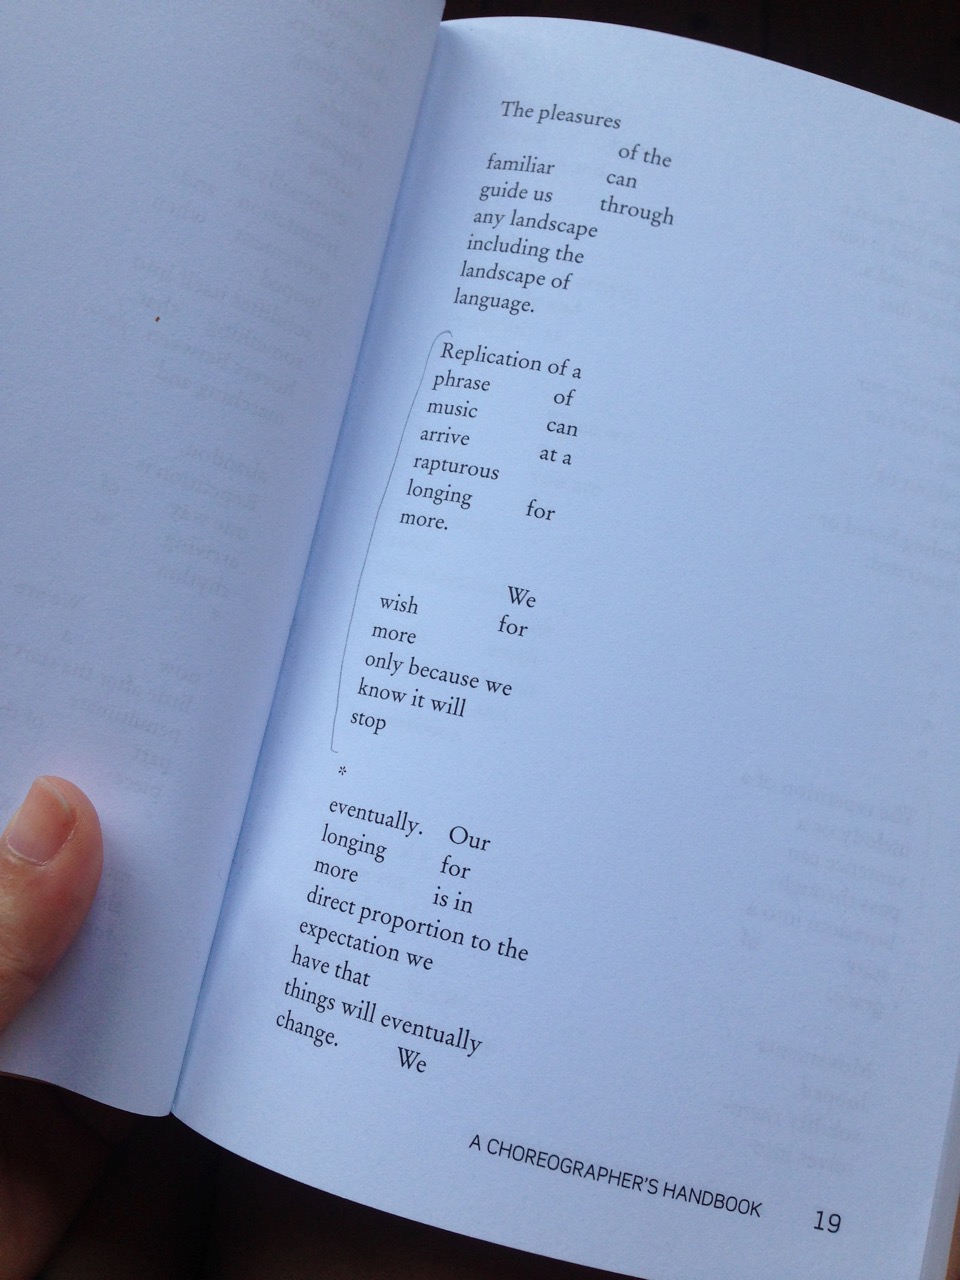 The pleasures
of the
familiar can
guide us through
any landscape
including the
landscape of
language.
Replication of a
phrase of
music can
arrive at a
rapturous
longing for
more.
We
wish for
more
only because we
know it will
stop
*
eventually. Our
longing for
more is in
direct proportion to the
expectation we
have that
things will eventually
change. We
A CHOREOGRAPHER'S HANDBOOK 19